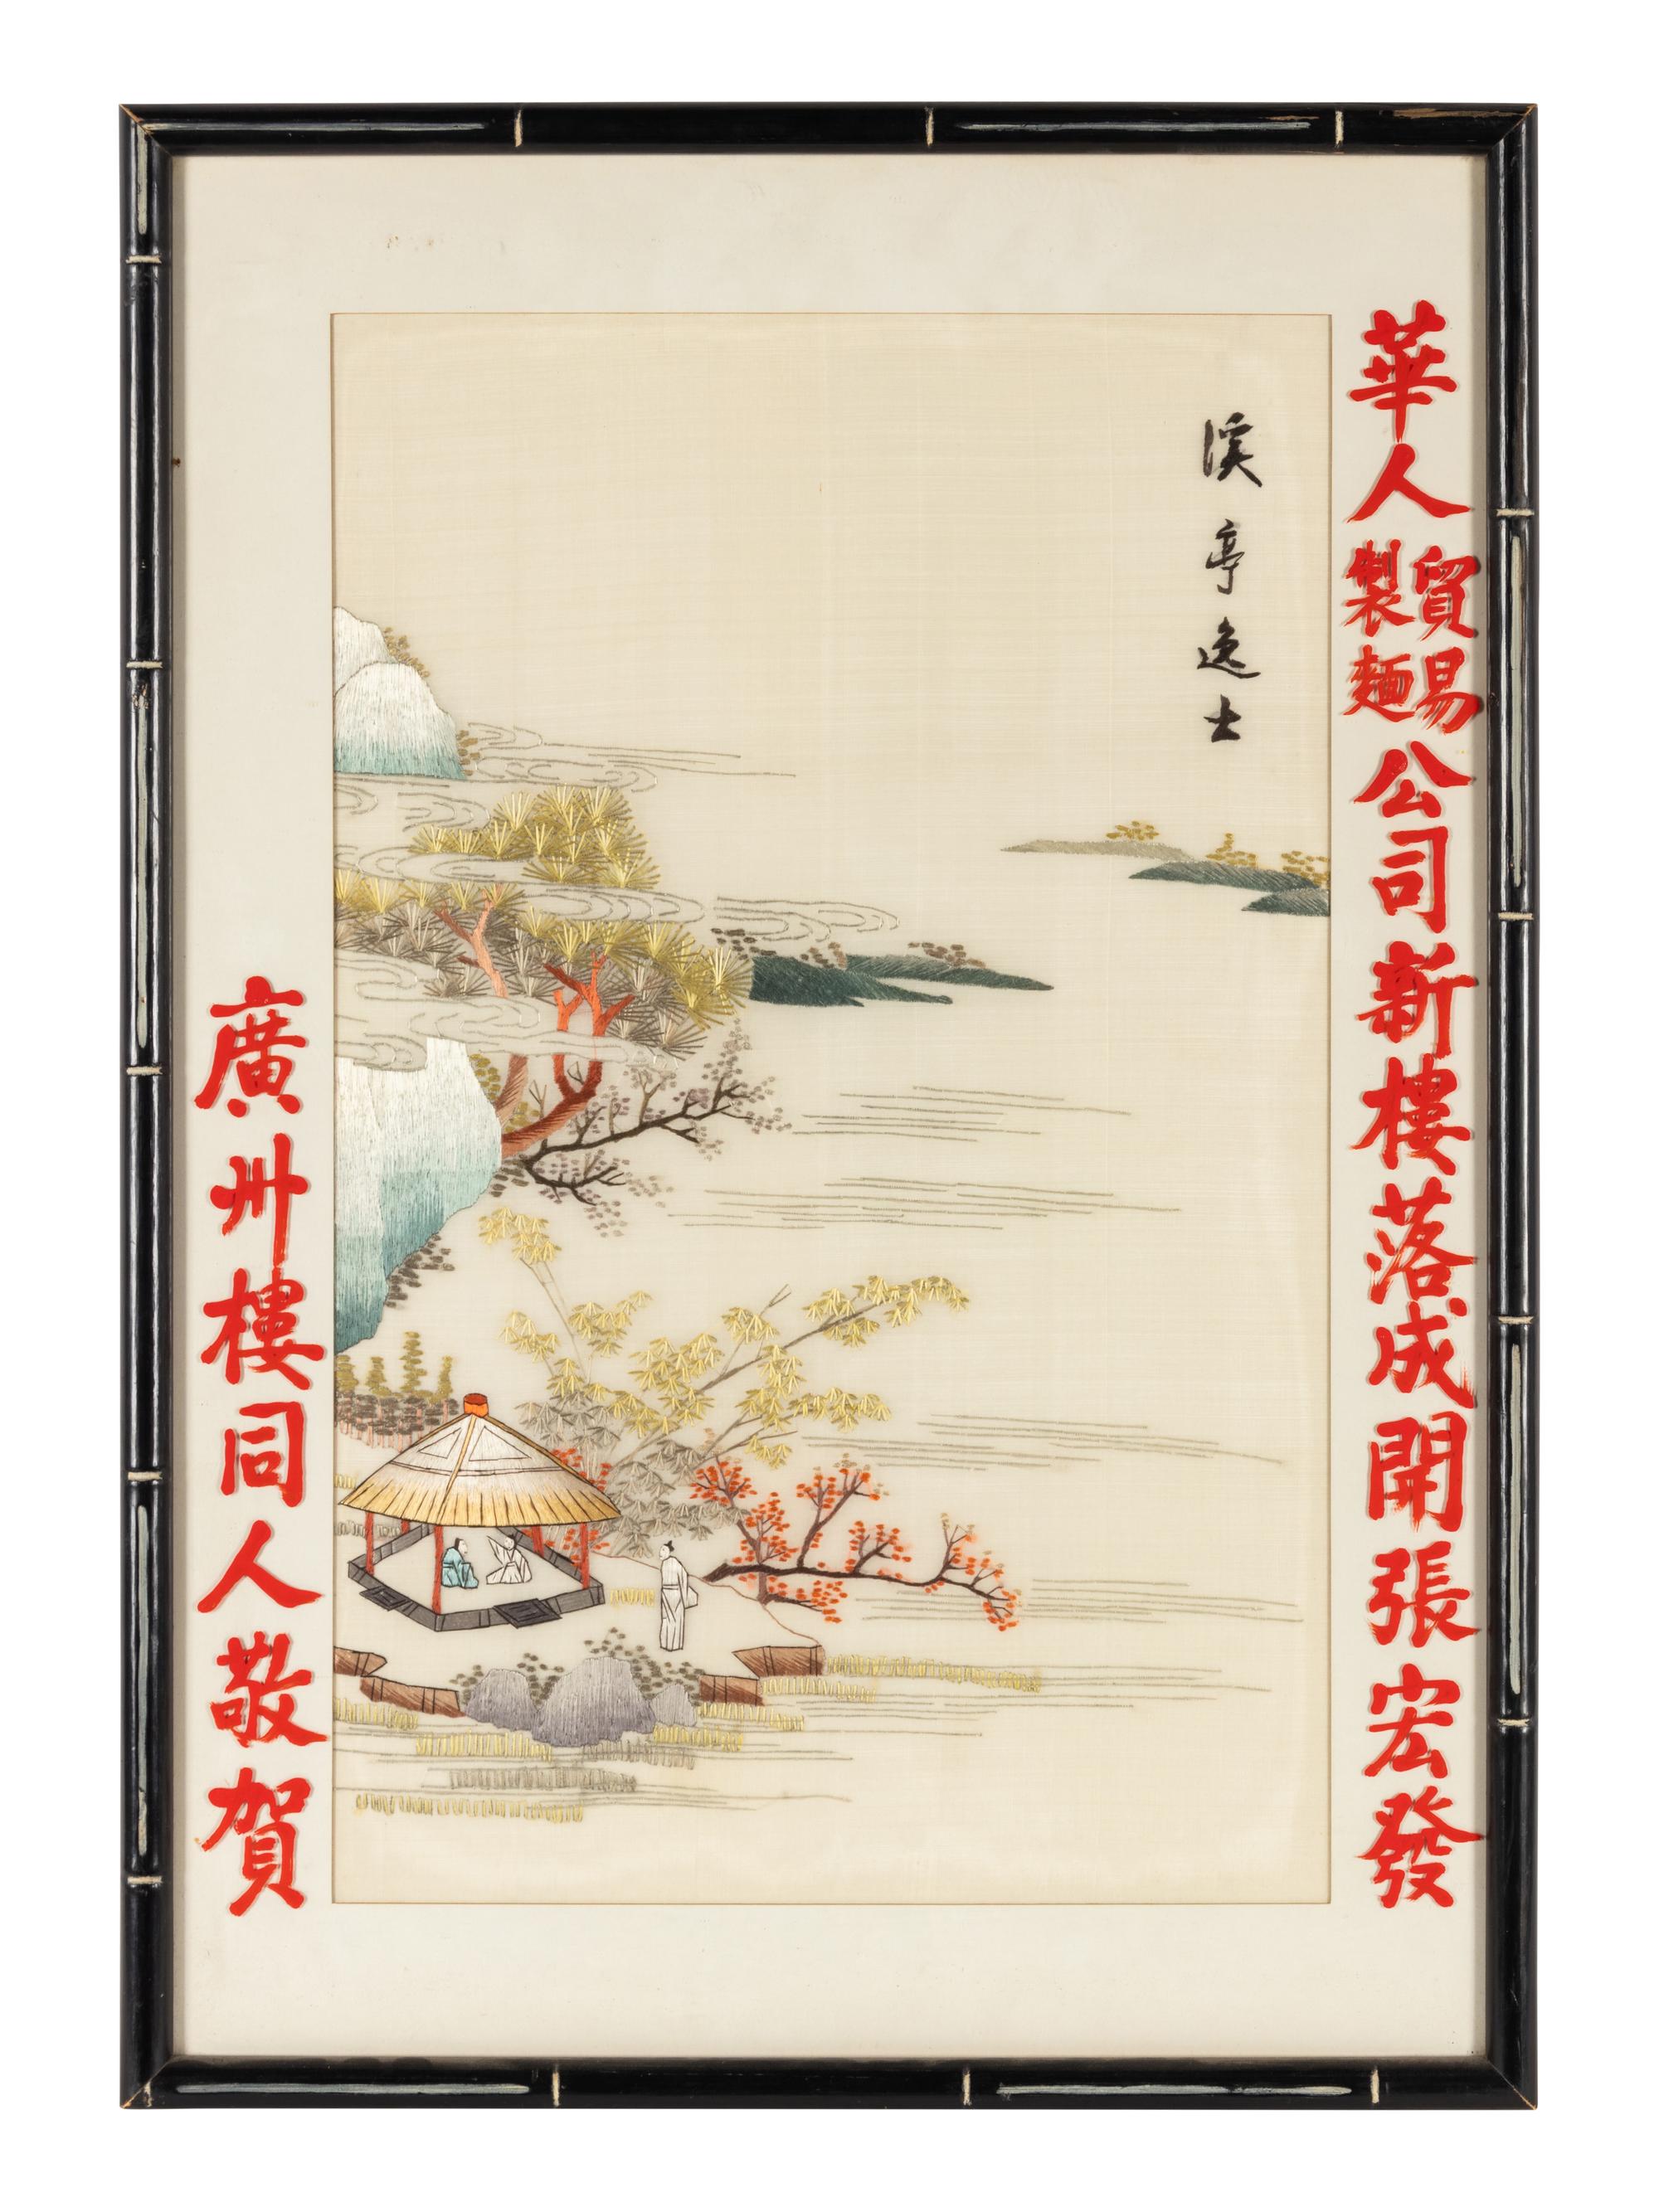 華人貿易製麵公司新樓落成開張宏發
溪亭逸士
廣州樓同人敬賀